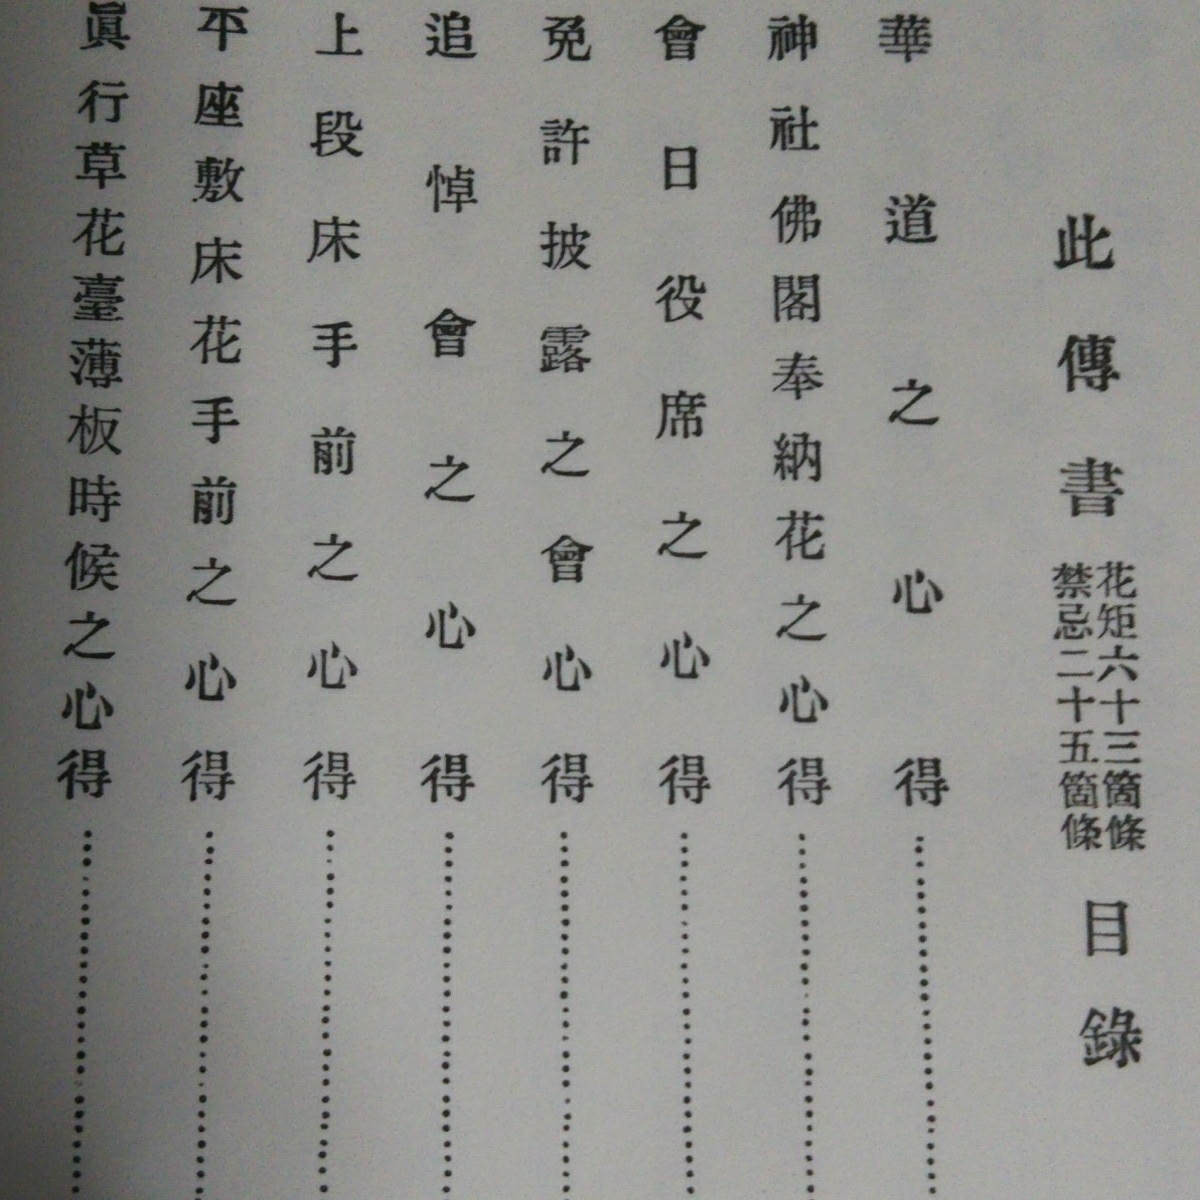 此傳書花矩六十三箇條禁忌二十五箇條目錄
華道之心得
神社佛閣奉納花之心得
會日役席之心得
免許披露之會心得
追悼會之心得
上段床手前之心得
平座敷床花手前之心得
眞行草花臺薄板時候之心得